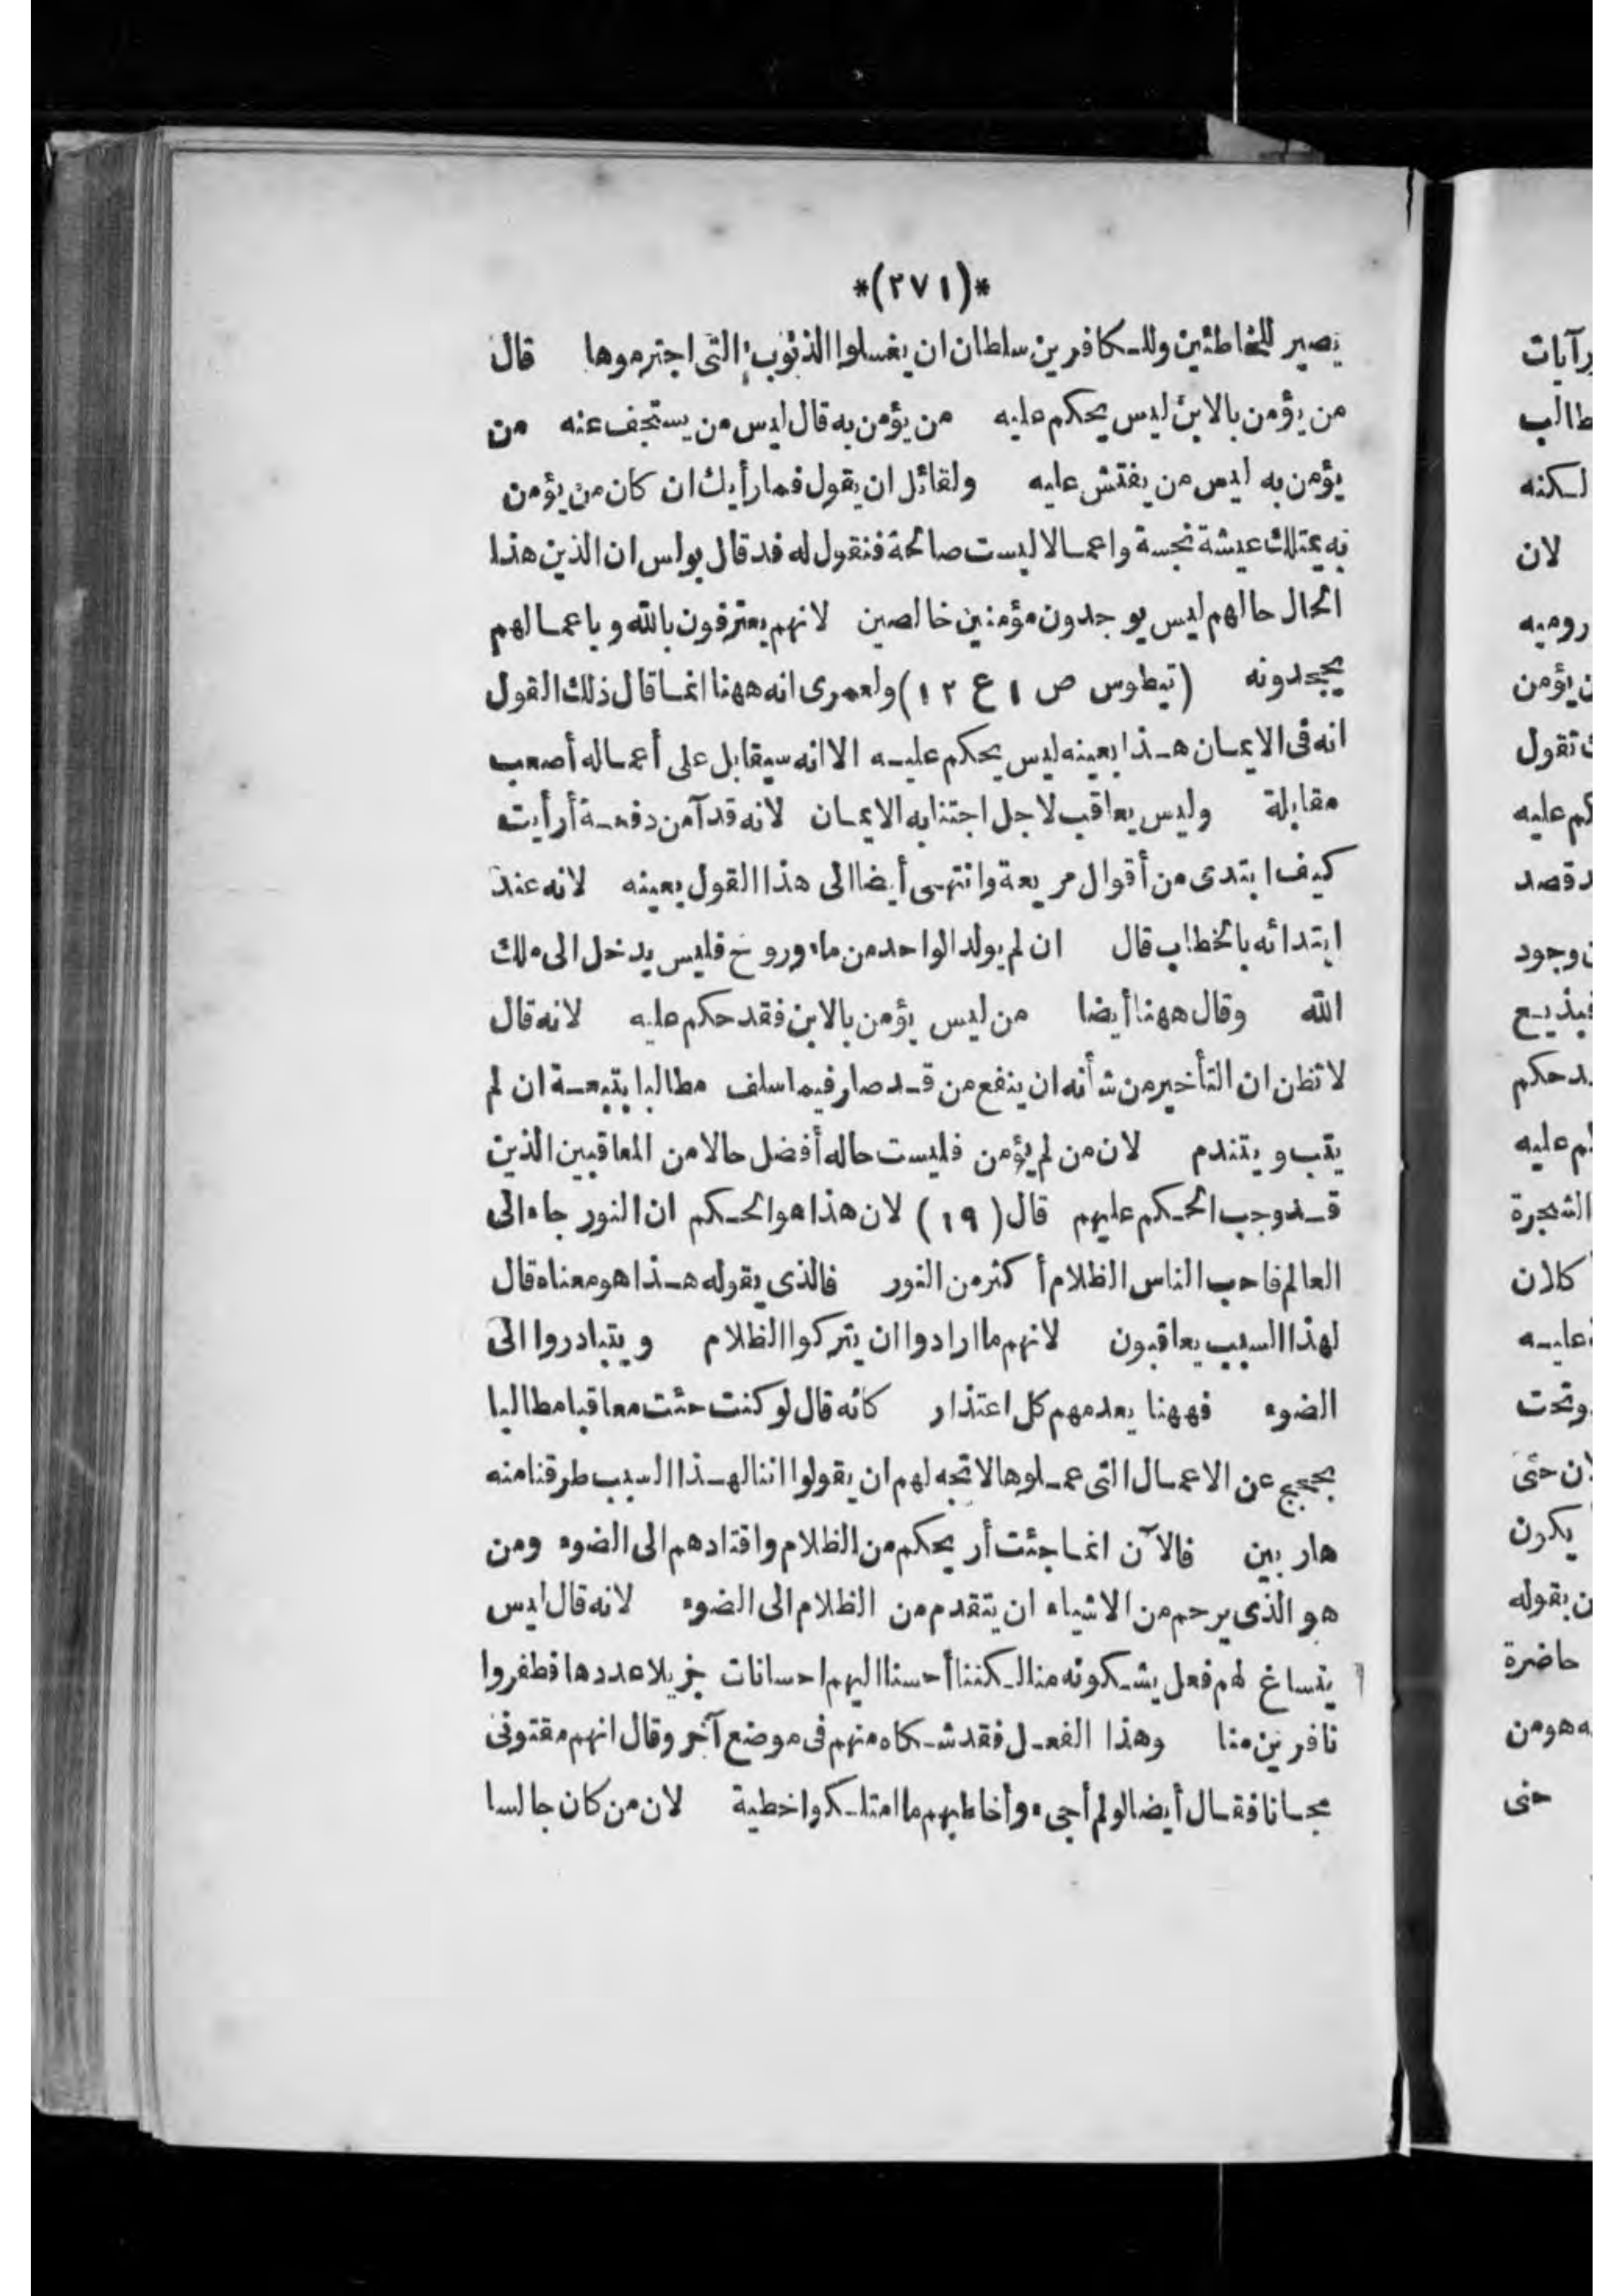 *(٢٧١)*
يصير للخاطئين وللكافرين سلطان ان يغسلوا الذنوب التى اجترموها قال
من يؤمن بالابن ليس يحكم عليه من يؤمن به قال ليس من يستجف عنه من
يؤمن به ليس من يفتش عليه ولقائل ان يقول فما رأيك ان كان من يؤمن
به يمتلك عيشة نجسة واعمالا ليست صالحة فنقول له قد قال بولس ان الذين هذا
الحال حالهم ليس يوجدون مؤمنين خالصين لانهم يعترفون بالله و باعمالهم
يجحدونه (تيطوس ص ١ ع ١٢) ولعمرى انه ههنا انما قال ذلك القول
انه فى الايمان هذا بعينه ليس يحكم عليه الا انه سيقابل على أعماله أصعب
مقابلة وليس يعاقب لاجل اجتنابه الايمان لانه قد آمن دفعة أرأيت
كيف ابتدى من أقوال مريعة وانتهى أيضا الى هذا القول بعينه لانه عند
ابتدائه بالخطاب قال ان لم يولد الواحد من ماء وروح فليس يدخل الى ملك
الله وقال ههنا أيضا من ليس يؤمن بالابن فقد حكم عليه لانه قال
لا تظن ان التأخير من شأنه ان ينفع من قد صار فيما سلف مطالبا بتبعة ان لم
يتب و يتندم لان من لم يؤمن فليست حاله أفضل حالا من المعاقبين الذين
قد وجب الحكم عليهم قال (١٩) لان هذا هو الحكم ان النور جاء الى
العالم فاحب الناس الظلام أكثر من النور فالذى يقوله هذا هو معناه قال
لهذا السبب يعاقبون لانهم ما ارادوا ان يتركوا الظلام و يتبادروا الى
الضوء فههنا يعدمهم كل اعتذار كانه قال لو كنت جئت معاقبا مطالبا
بحجج عن الاعمال التى عملوها لاتجه لهم ان يقولوا اننا لهذا السبب طرقنا منه
هاربين فالآن انما جئت أريحكم من الظلام واقتادهم الى الضوء ومن
هو الذى يرحم من الاشياء ان يتقدم من الظلام الى الضوء لانه قال ليس
يتساغ لهم فعل يشكونه منا لكننا أحسنا اليهم احسانات جزيلا عددها فطفروا
نافرين منا وهذا الفعل فقد شكاه منهم فى موضع آخر وقال انهم مقتونى
مجانا فقال أيضا لو لم أجىء وأخاطبهم ما امتلكوا خطية لان من كان جالسا
رآيات
طالب
لكنه
لان
روميه
يؤمن
تقول
كم عليه
قصد
وجود
فيذيع
حكم
لم عليه
الشجرة
كلان
عليه
وتحت
ان حتى
يكون
ن بقوله
حاضرة
ه هو من
حتى